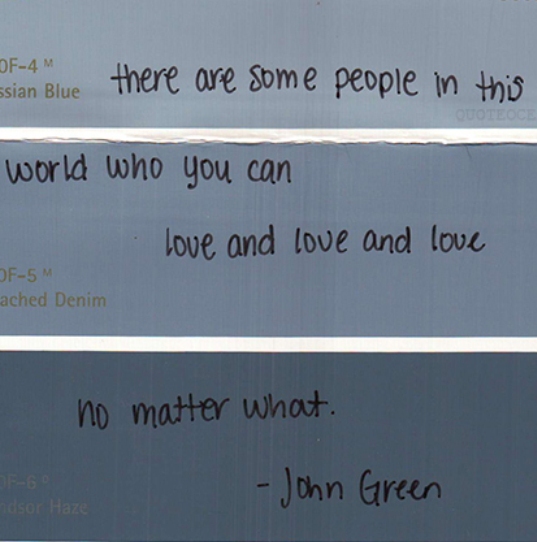 0F-4 M
there are some people in this
ssian Blue
QUOTEOCE
world who you can
love and love and love
0F-5 M
ached Denim
no matter what.
0F-6 R
ndsor Haze
- John Green